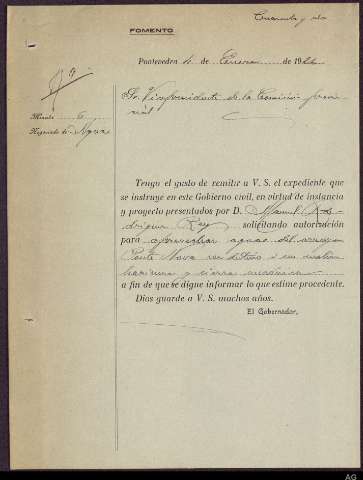 FOMENTO
Pontevedra 4 de Enero de 19
Sr. Vicepresidente de la Comisión provin
cial
Minuta 6
Negociado de Aguas
Tengo el gusto de remitir a V. S. el expediente que
se instruye en este Gobierno civil, en virtud de instancia
y proyecto presentados por D. Manuel Ro-
driguez Rey solicitando autorización
para aprovechar aguas del
Ponte Nova con destino a un molino
harinero y sierra mecánica
a fin de que se digne informar lo que estime procedente.
Dios guarde a V. S. muchos años.
El Gobernador,
AG